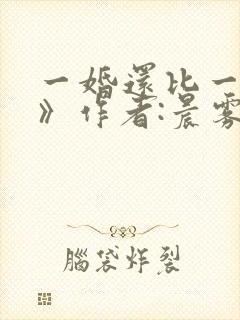 一婚還比一
》作者:晨霧
腦袋炸裂